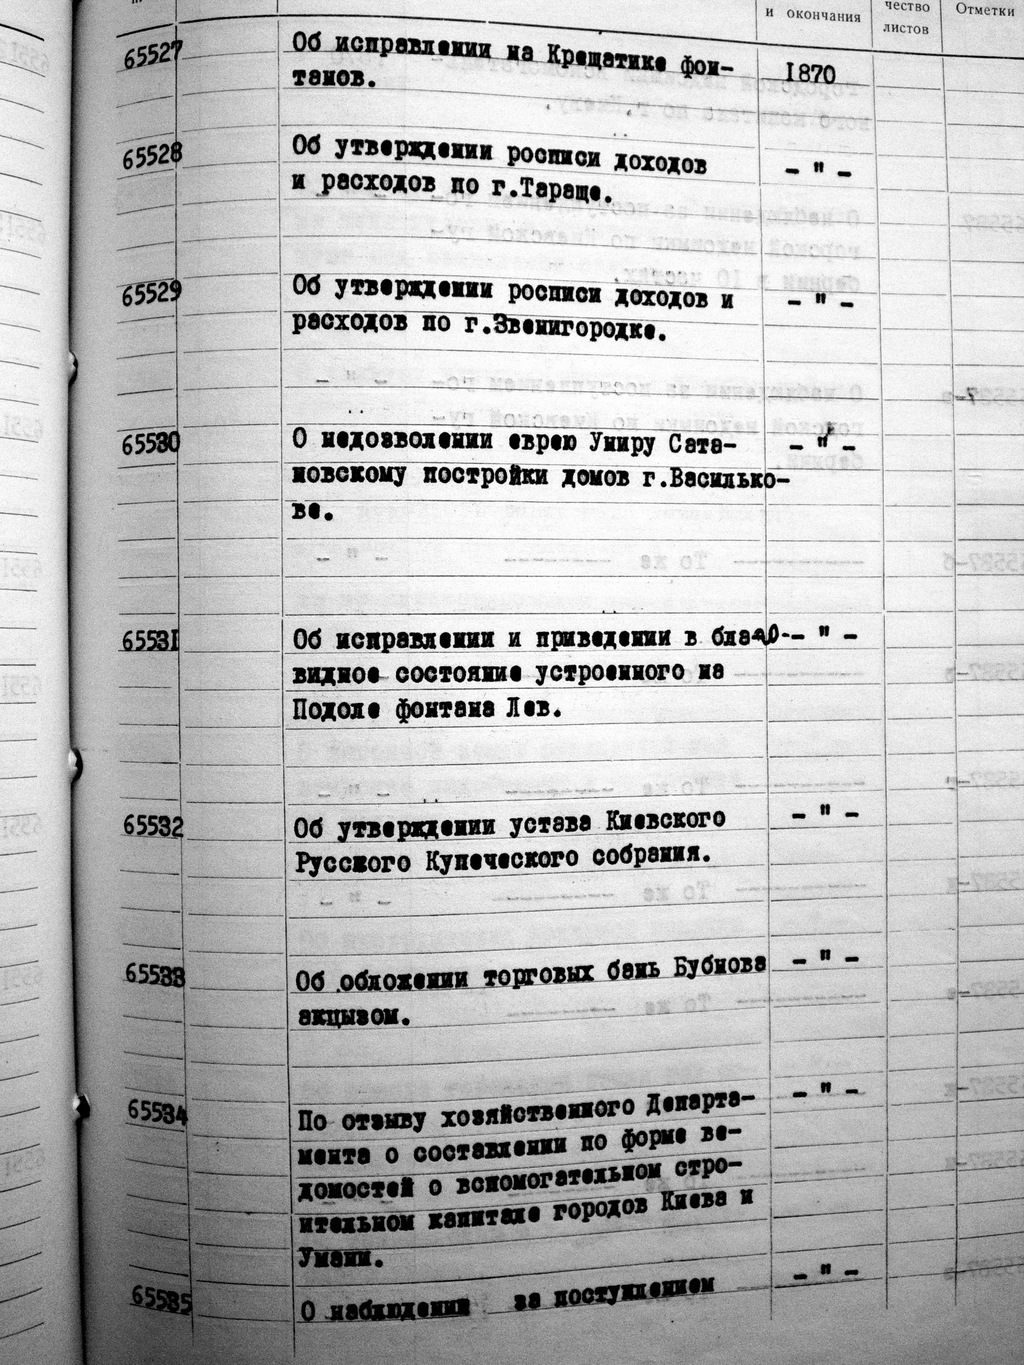 и окончания
чество
листов
Отметки
65527
Об исправлении на Крещатике фон-
танов.
1870
65528
Об утверждении росписи доходов
и расходов по г.Тараще.
- " -
65529
Об утверждении росписи доходов и
расходов по г.Звенигородке.
- " -
65530
О недозволении еврею Умиру Сата-
новскому постройки домов г.Василько-
ве.
- " -
65531
Об исправлении и приведении в благо-
видное состояние устроенного на
Подоле фонтана Лев.
- " -
65532
Об утверждении устава Киевского
Русского Купеческого собрания.
- " -
65533
Об обложении торговых бань Бубнова
акцызом.
- " -
65534
По отзыву хозяйственного Департа-
мента о составлении по форме ве-
домостей о вспомогательном стро-
ительном капитале городов Киева и
Умани.
- " -
65535
О наблюдении за поступлением
- " -